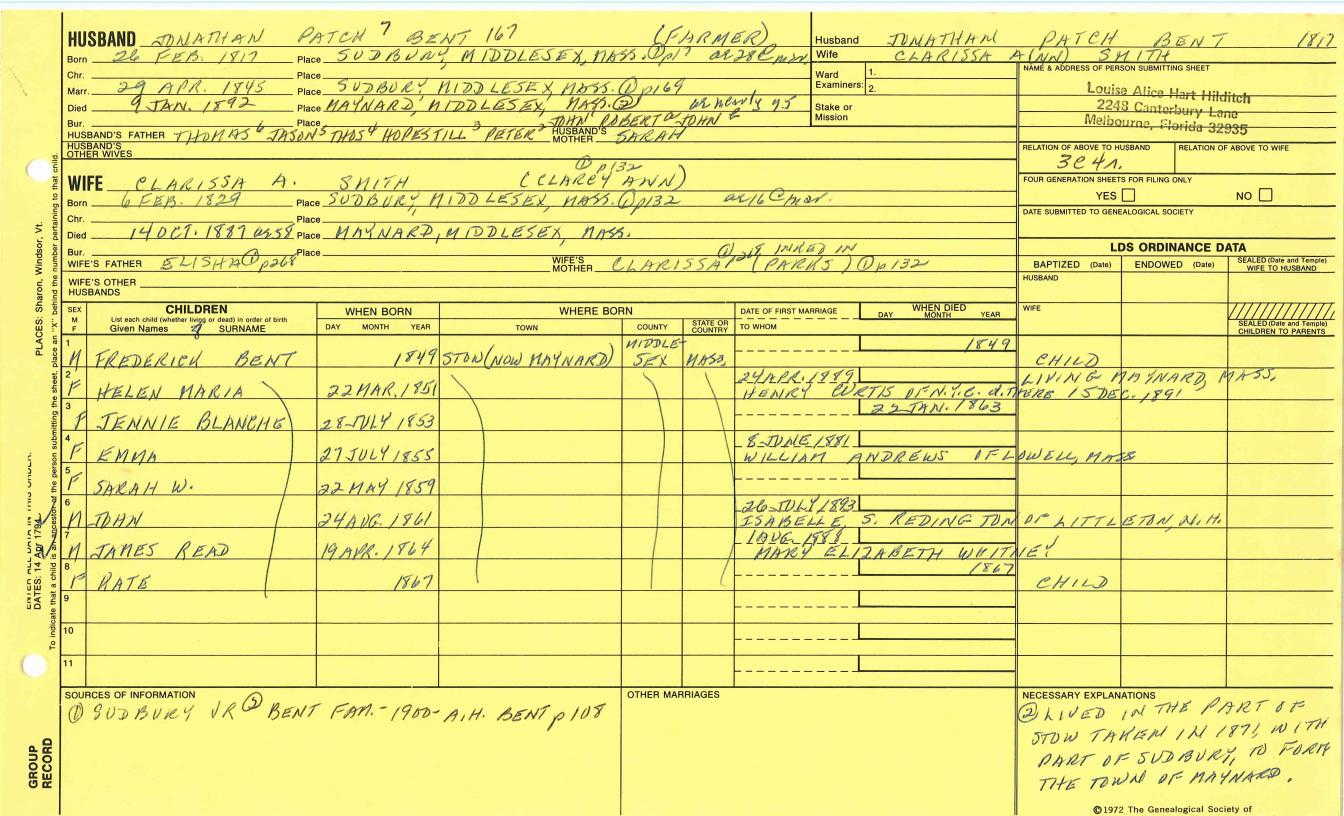 HUSBAND JONATHAN PATCH 7 BENT 167 (FARMER)
Born 26 FEB. 1817 Place SUDBURY, MIDDLESEX, MASS. ① p17 or 28 © mar.
Chr. Place
Marr. 29 APR. 1845 Place SUDBURY, MIDDLESEX, MASS. ① p169
Died 9 JAN. 1892 Place MAYNARD, MIDDLESEX, MASS. ② or nearly 75
Bur. Place JOHN ROBERT JOHN
HUSBAND'S FATHER THOMAS 6 JASON 5 THOS 4 HOPESTILL 3 PETER 2 HUSBAND'S MOTHER SARAH
HUSBAND'S OTHER WIVES
① p132
WIFE CLARISSA A. SMITH (CLARCY ANN)
Born 6 FEB. 1829 Place SUDBURY, MIDDLESEX, MASS. ① p132 or 16 © mar.
Chr. Place
Died 14 OCT. 1887 ae 58 Place MAYNARD, MIDDLESEX, MASS.
Bur. Place
① p268 INKED IN
WIFE'S FATHER ELISHA ① p268 WIFE'S MOTHER CLARISSA (PARKS) ① p132
WIFE'S OTHER HUSBANDS
Husband JONATHAN PATCH BENT 1817
Wife CLARISSA A(NN) SMITH
Ward Examiners: 1.
2.
Stake or Mission
NAME & ADDRESS OF PERSON SUBMITTING SHEET
Louise Alice Hart Hilditch
2248 Canterbury Lane
Melbourne, Florida 32935
RELATION OF ABOVE TO HUSBAND RELATION OF ABOVE TO WIFE
3C4R.
FOUR GENERATION SHEETS FOR FILING ONLY
YES NO
DATE SUBMITTED TO GENEALOGICAL SOCIETY
LDS ORDINANCE DATA
BAPTIZED (Date) ENDOWED (Date) SEALED (Date and Temple) WIFE TO HUSBAND
HUSBAND
WIFE
SEALED (Date and Temple) CHILDREN TO PARENTS
SEX M F
CHILDREN
List each child (whether living or dead) in order of birth
Given Names 8 SURNAME
WHEN BORN
DAY MONTH YEAR
WHERE BORN
TOWN COUNTY STATE OR COUNTRY
DATE OF FIRST MARRIAGE
TO WHOM
WHEN DIED
DAY MONTH YEAR
1 M FREDERICK BENT 1849 STOW (NOW MAYNARD) MIDDLE-SEX MASS. 1849 CHILD
2 F HELEN MARIA 22 MAR. 1851 24 APR. 1889 LIVING MAYNARD, MASS.
HENRY CURTIS OF N.Y.C. d. THERE 15 DEC. 1891
3 F JENNIE BLANCHE 28 JULY 1853 22 JAN. 1863
4 F EMMA 27 JULY 1855 8 JUNE 1881
WILLIAM ANDREWS OF LOWELL, MASS
5 F SARAH W. 22 MAY 1859
6 M JOHN 24 AUG. 1861 26 JULY 1893
ISABELLE S. REDINGTON OF LITTLETON, N.H.
7 M JAMES READ 19 APR. 1864 1 AUG. 1888
MARY ELIZABETH WHITNEY
8 F KATE 1867 1867 CHILD
9
10
11
SOURCES OF INFORMATION
① SUDBURY VR ② BENT FAM. - 1900 - A.H. BENT p 108
OTHER MARRIAGES
NECESSARY EXPLANATIONS
② LIVED IN THE PART OF
STOW TAKEN IN 1871, WITH
PART OF SUDBURY, TO FORM
THE TOWN OF MAYNARD.
©1972 The Genealogical Society of
PLACES: Sharon, Windsor, Vt.
ENTER ALL DATA IN THIS ORDER:
DATES: 14 Apr 1794
To indicate that a child is an ancestor of the person submitting the sheet, place an "X" behind the number pertaining to that child.
GROUP RECORD